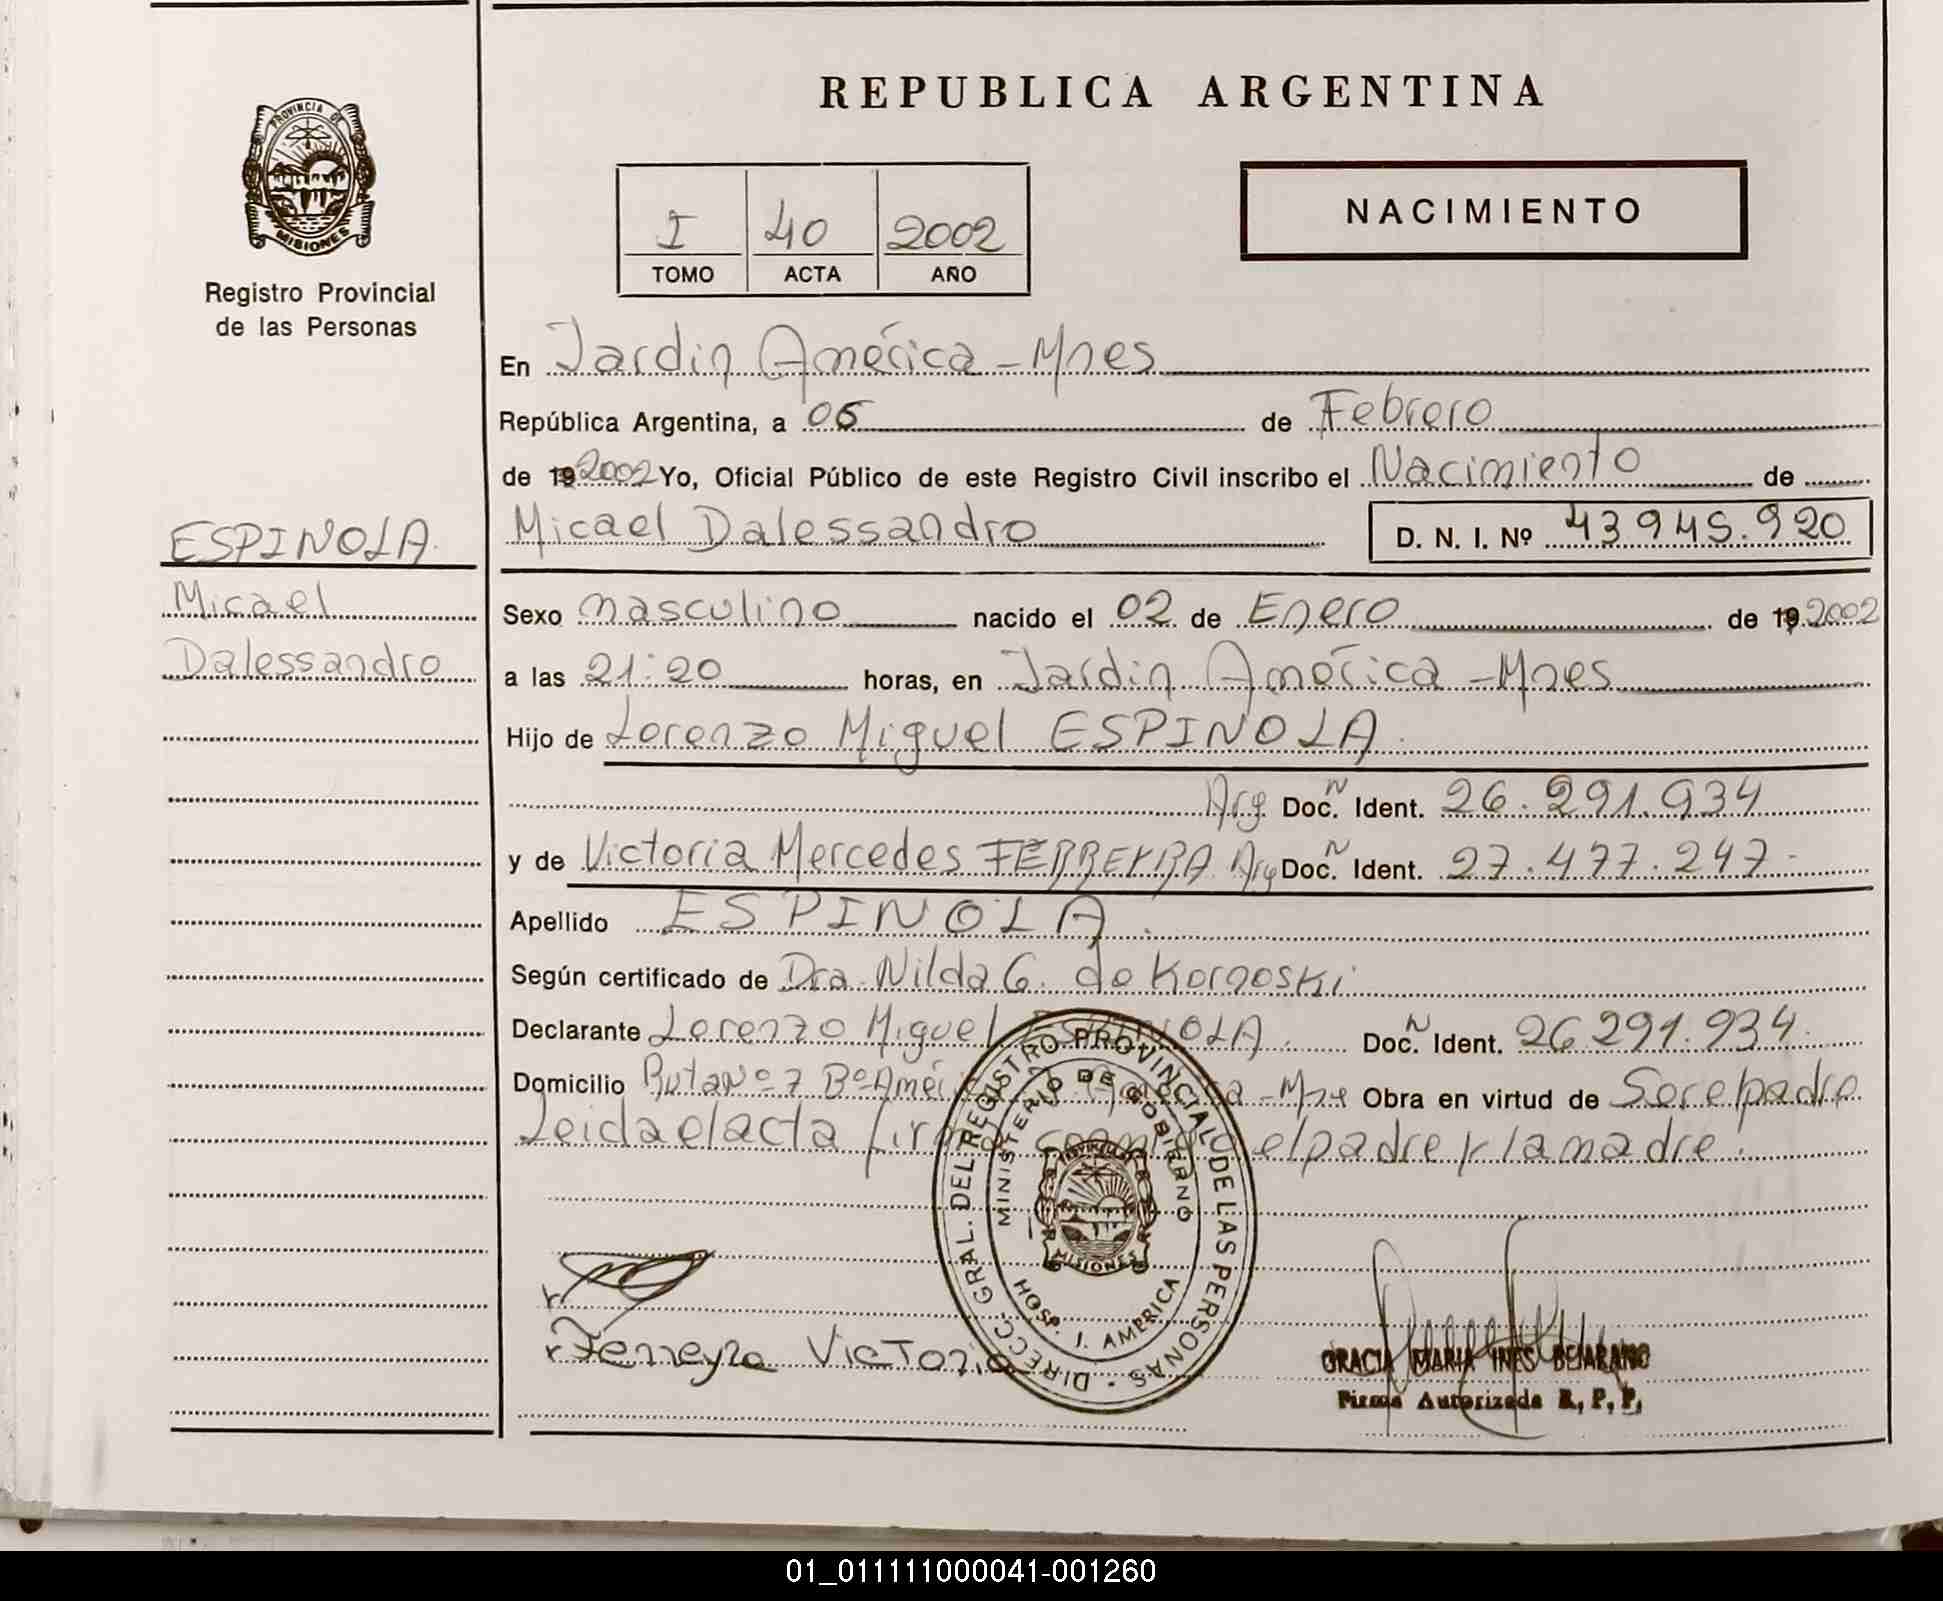 PROVINCIA DE
MISIONES
Registro Provincial
de las Personas
REPUBLICA ARGENTINA
I 40 2002
TOMO ACTA AÑO
NACIMIENTO
En Jardin América - Mnes
República Argentina, a 06 de Febrero
de 19 2002 Yo, Oficial Público de este Registro Civil inscribo el Nacimiento de
Micael Dalessandro D. N. I. Nº 43945.920
ESPINOLA.
Micael
Dalessandro
Sexo masculino nacido el 02 de Enero de 19 2002
a las 21:20 horas, en Jardin América - Mnes
Hijo de Lorenzo Miguel ESPINOLA.
Arg. Doc. N Ident. 26.291.934
y de Victoria Mercedes FERREYRA Arg Doc. N Ident. 27.477.247-
Apellido ESPINOLA.
Según certificado de Dra. Nilda G. de Kornoski
Declarante Lorenzo Miguel ESPINOLA. Doc. N Ident. 26 291.934.
Domicilio Ruta Nº 7 Bº América - Mne Obra en virtud de Ser el padre
Leida el acta el padre y la madre.
DIRECC. GRAL. DEL REGISTRO PROVINCIAL DE LAS PERSONAS
MINISTERIO DE GOBIERNO
MISIONES
HOSP. J. AMERICA
Ferreyra Victoria
GRACIA MARIA INES BEJARANO
Firma Autorizada R. P. P.
01_011111000041-001260